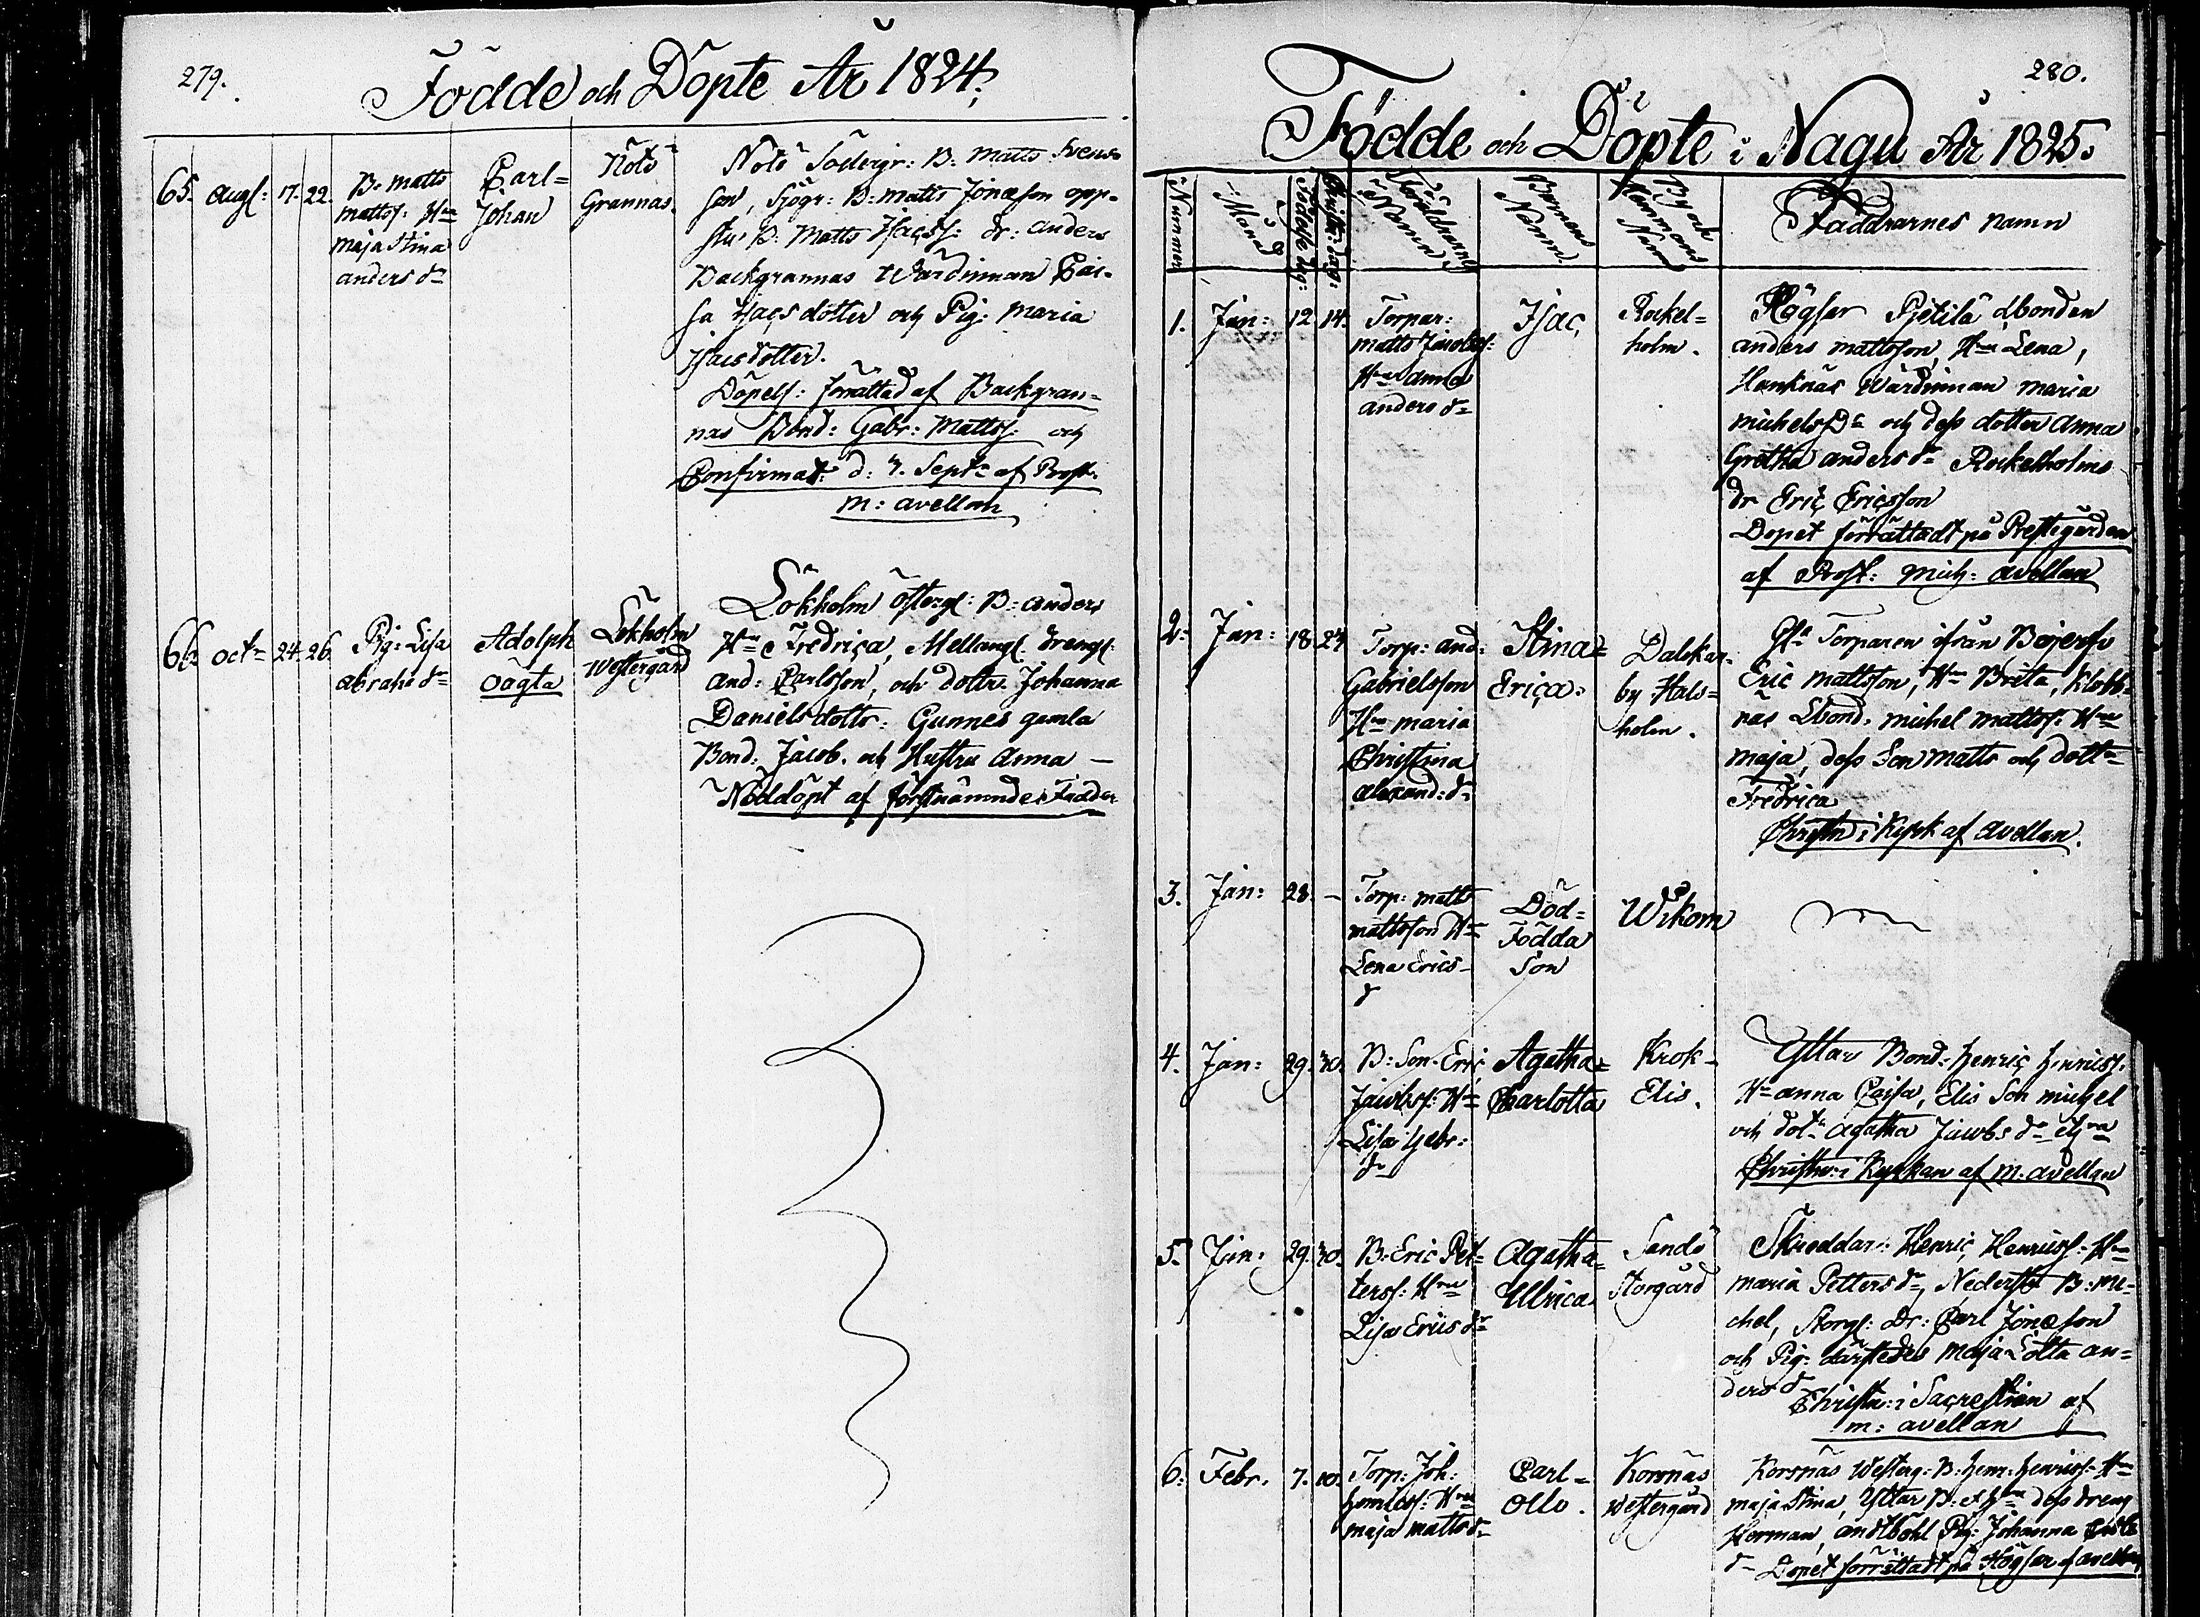 279.
Födde och Döpte År 1824.
65. Augs: 17. 22.
B. Matts
Matts: Hu
Maja Stina
Anders dr
Carl=
Johan
Nötö
Grannas.
Nötö Södergr: B: Matts Svens
son, Sjögr: B: Matts Jonæson opp-
stu B: Matts Isacss: dr: Anders
Backgrannas Wärdinnan Cai-
sa Isacsdotter och Pig: Maria
Isacsdotter.
Döpels: förrättad af Backgran=
nas Bond: Gabr: Mattss: och
Confirmat: d: 7. Septr af Prost.
M: Avellan
66. Octr 24. 26.
Pig: Lisa
Abrahs dr
Adolph
oägta
Lökholm
Westergård
Lökholm Östergl: B: Anders
Hu Fredrica, Mellangl. drengl:
And: Carlsson, och dottr. Johanna
Daniels dottr: Gunnes gamla
Bond: Jacob. och Hustru Anna —
Nöddöpt af förstnämnde Fadder
280.
Födde och Döpte i Nagu År 1825.
Nummer
Månad
Födelse dag:
Christn: dag:
Föräldrarnes
Namn
Barnens
Namn.
By och
Hemmans
Namn
Faddrarnes namn
1. Jan: 12. 14.
Torpar:
Matts Jacobss:
Hu Anna
Anders dr
Isac
Rockel=
holm.
Högsar Pjetilä Åbonden
Anders Mattsson, Hu Lena,
Hanknäs Wärdinnan Maria
Michels Dr och dess dotter Anna
Gretha Anders dr Rockelholms
dr Eric Ericsson
Dopet förrättadt på Prestegården
af Prost: Mich: Avellan
2. Jan: 18. 23.
Torp: And:
Gabrielsson
Hu Maria
Christina
Alexand: dr
Stina=
Erica.
Dalkar-
by Hals=
holm.
Torparen ifrån Böjersö
Eric Mattsson, Hu Brita, Klobb=
näs Åbond. Michel Mattss: Hu
Maja, dess Son Matts och dottr
Fredrica
Christn: i Kyrk af Avellan.
3. Jan: 28. —
Torp: Matts
Mattsson Hu
Lena Erics-
dr
Död=
Födda
Son
Wikom
4. Jan: 29. 30.
B: Son. Eric
Jacobss: Hu
Lisa Gabr:
dr
Agatha=
Charlotta
Krok-
Elis.
Yttar Bond: Henric Henricss:
Hu Anna Caisa, Elis Son Michel
och dotr Agatha Jacobs dr
Christn: i Kyrkan af M: Avellan
5. Jan: 29. 30.
B: Eric Pet-
terss: Hu
Lisa Erics dr
Agatha=
Ulrica.
Sandö
Storgård
Skreddar: Henric Henricss: Hu
Maria Petters dr, Nederst B: Mi-
chel, Storgl: Dr: Carl Jonæson
och Pig: därstedes Maja Lotta An=
ders dr
Christn: i Sacrestian af
M: Avellan
6. Febr. 7. 10.
Torp: Joh:
Henricss: Hu
Maja Matts dr
Carl=
Otto.
Korsnäs
Westergård
Korsnäs Westerg: B: Henr: Henricss: Hu
Maja Stina, Yttar B: dess dreng
Herman, Andtböhl Pig: Johanna
dr Dopet förrättadt på Högsar af Avellan